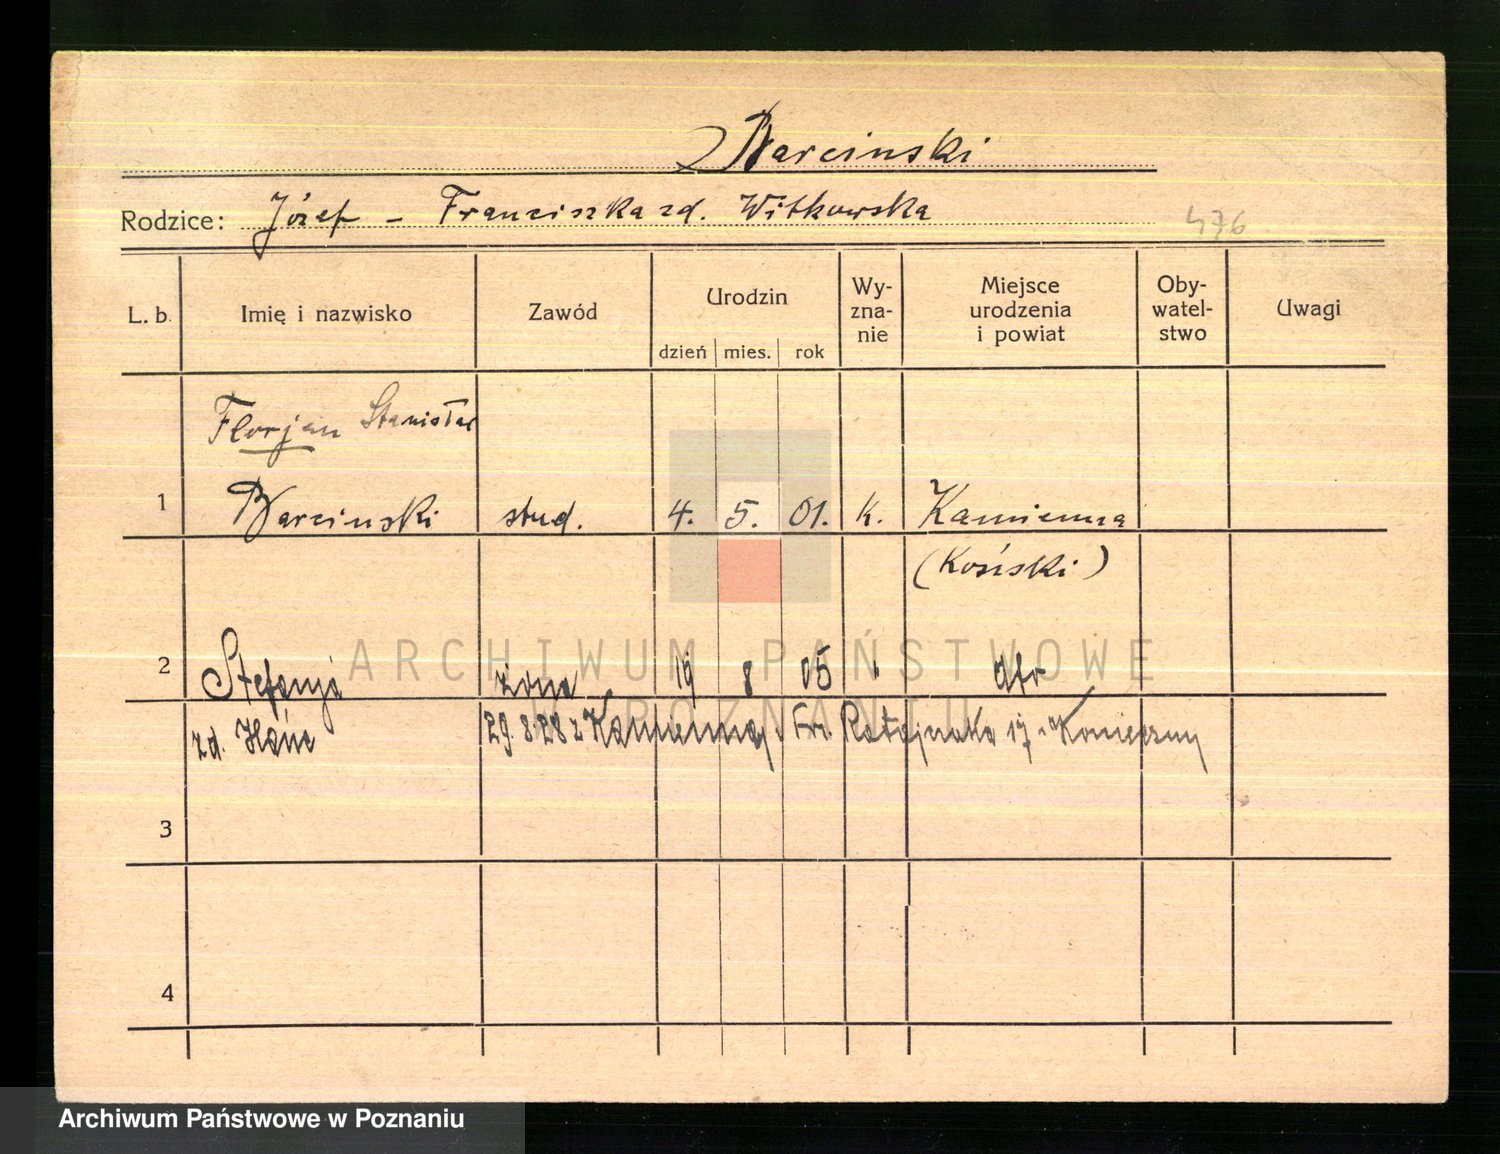 Barcinski
Rodzice: Józef - Franciszka zd. Witkowska
476
L. b. Imię i nazwisko Zawód Urodzin dzień mies. rok Wy-zna-nie Miejsce urodzenia i powiat Oby-watel-stwo Uwagi
Florjan Stanisław
1 Barcinski stud. 4. 5. 01. k. Kamienna
(Kosiski)
2 Stefanja żona 19 8 05 "
zd. 29.8.28 z Kamiennej. Fr. Ratajczaka 17
3
4
ARCHIWUM PAŃSTWOWE
W POZNANIU
Archiwum Państwowe w Poznaniu